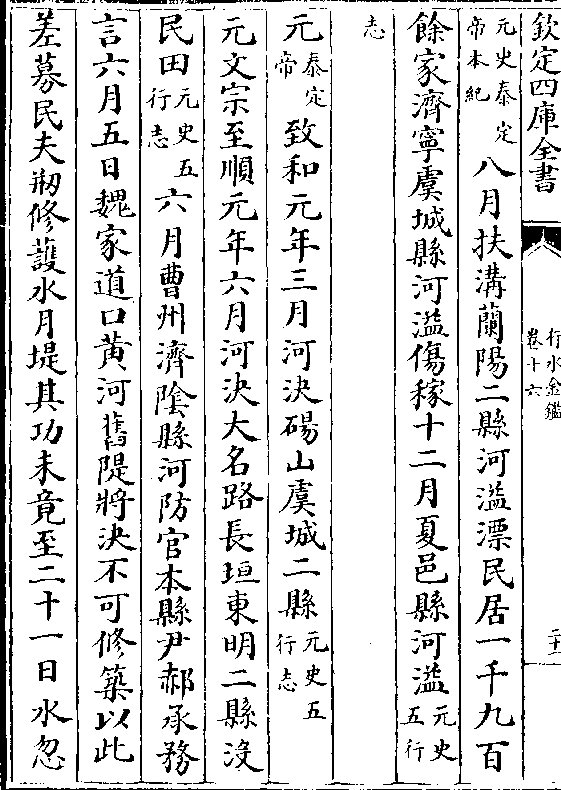 欽定四庫全書
行水金鑑
卷十六
二十一
元史泰定
帝本紀
八月扶溝蘭陽二縣河溢漂民居一千九百
餘家濟寧虞城縣河溢傷稼十二月夏邑縣河溢
元史
五行
志
元
泰定
帝
致和元年三月河決碭山虞城二縣
元史五
行志
元文宗至順元年六月河決大名路長垣東明二縣沒
民田
元史五
行志
六月曹州濟陰縣河防官本縣尹郝承務
言六月五日魏家道口黃河舊隄將決不可修築以此
差募民夫剏修護水月堤其功未竟至二十一日水忽